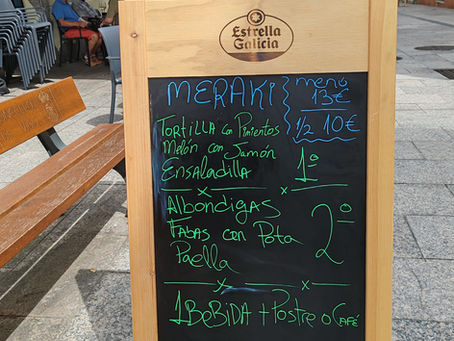 Estrella
Galicia
MERAKI
menú
13€
1/2 10€
TORTILLA con Pimientos
Melón con Jamón
ENSALADILLA
1º
Albondigas
FABAS con Pota
Paella
2º
1 BEBIDA + Postre o CAFÉ